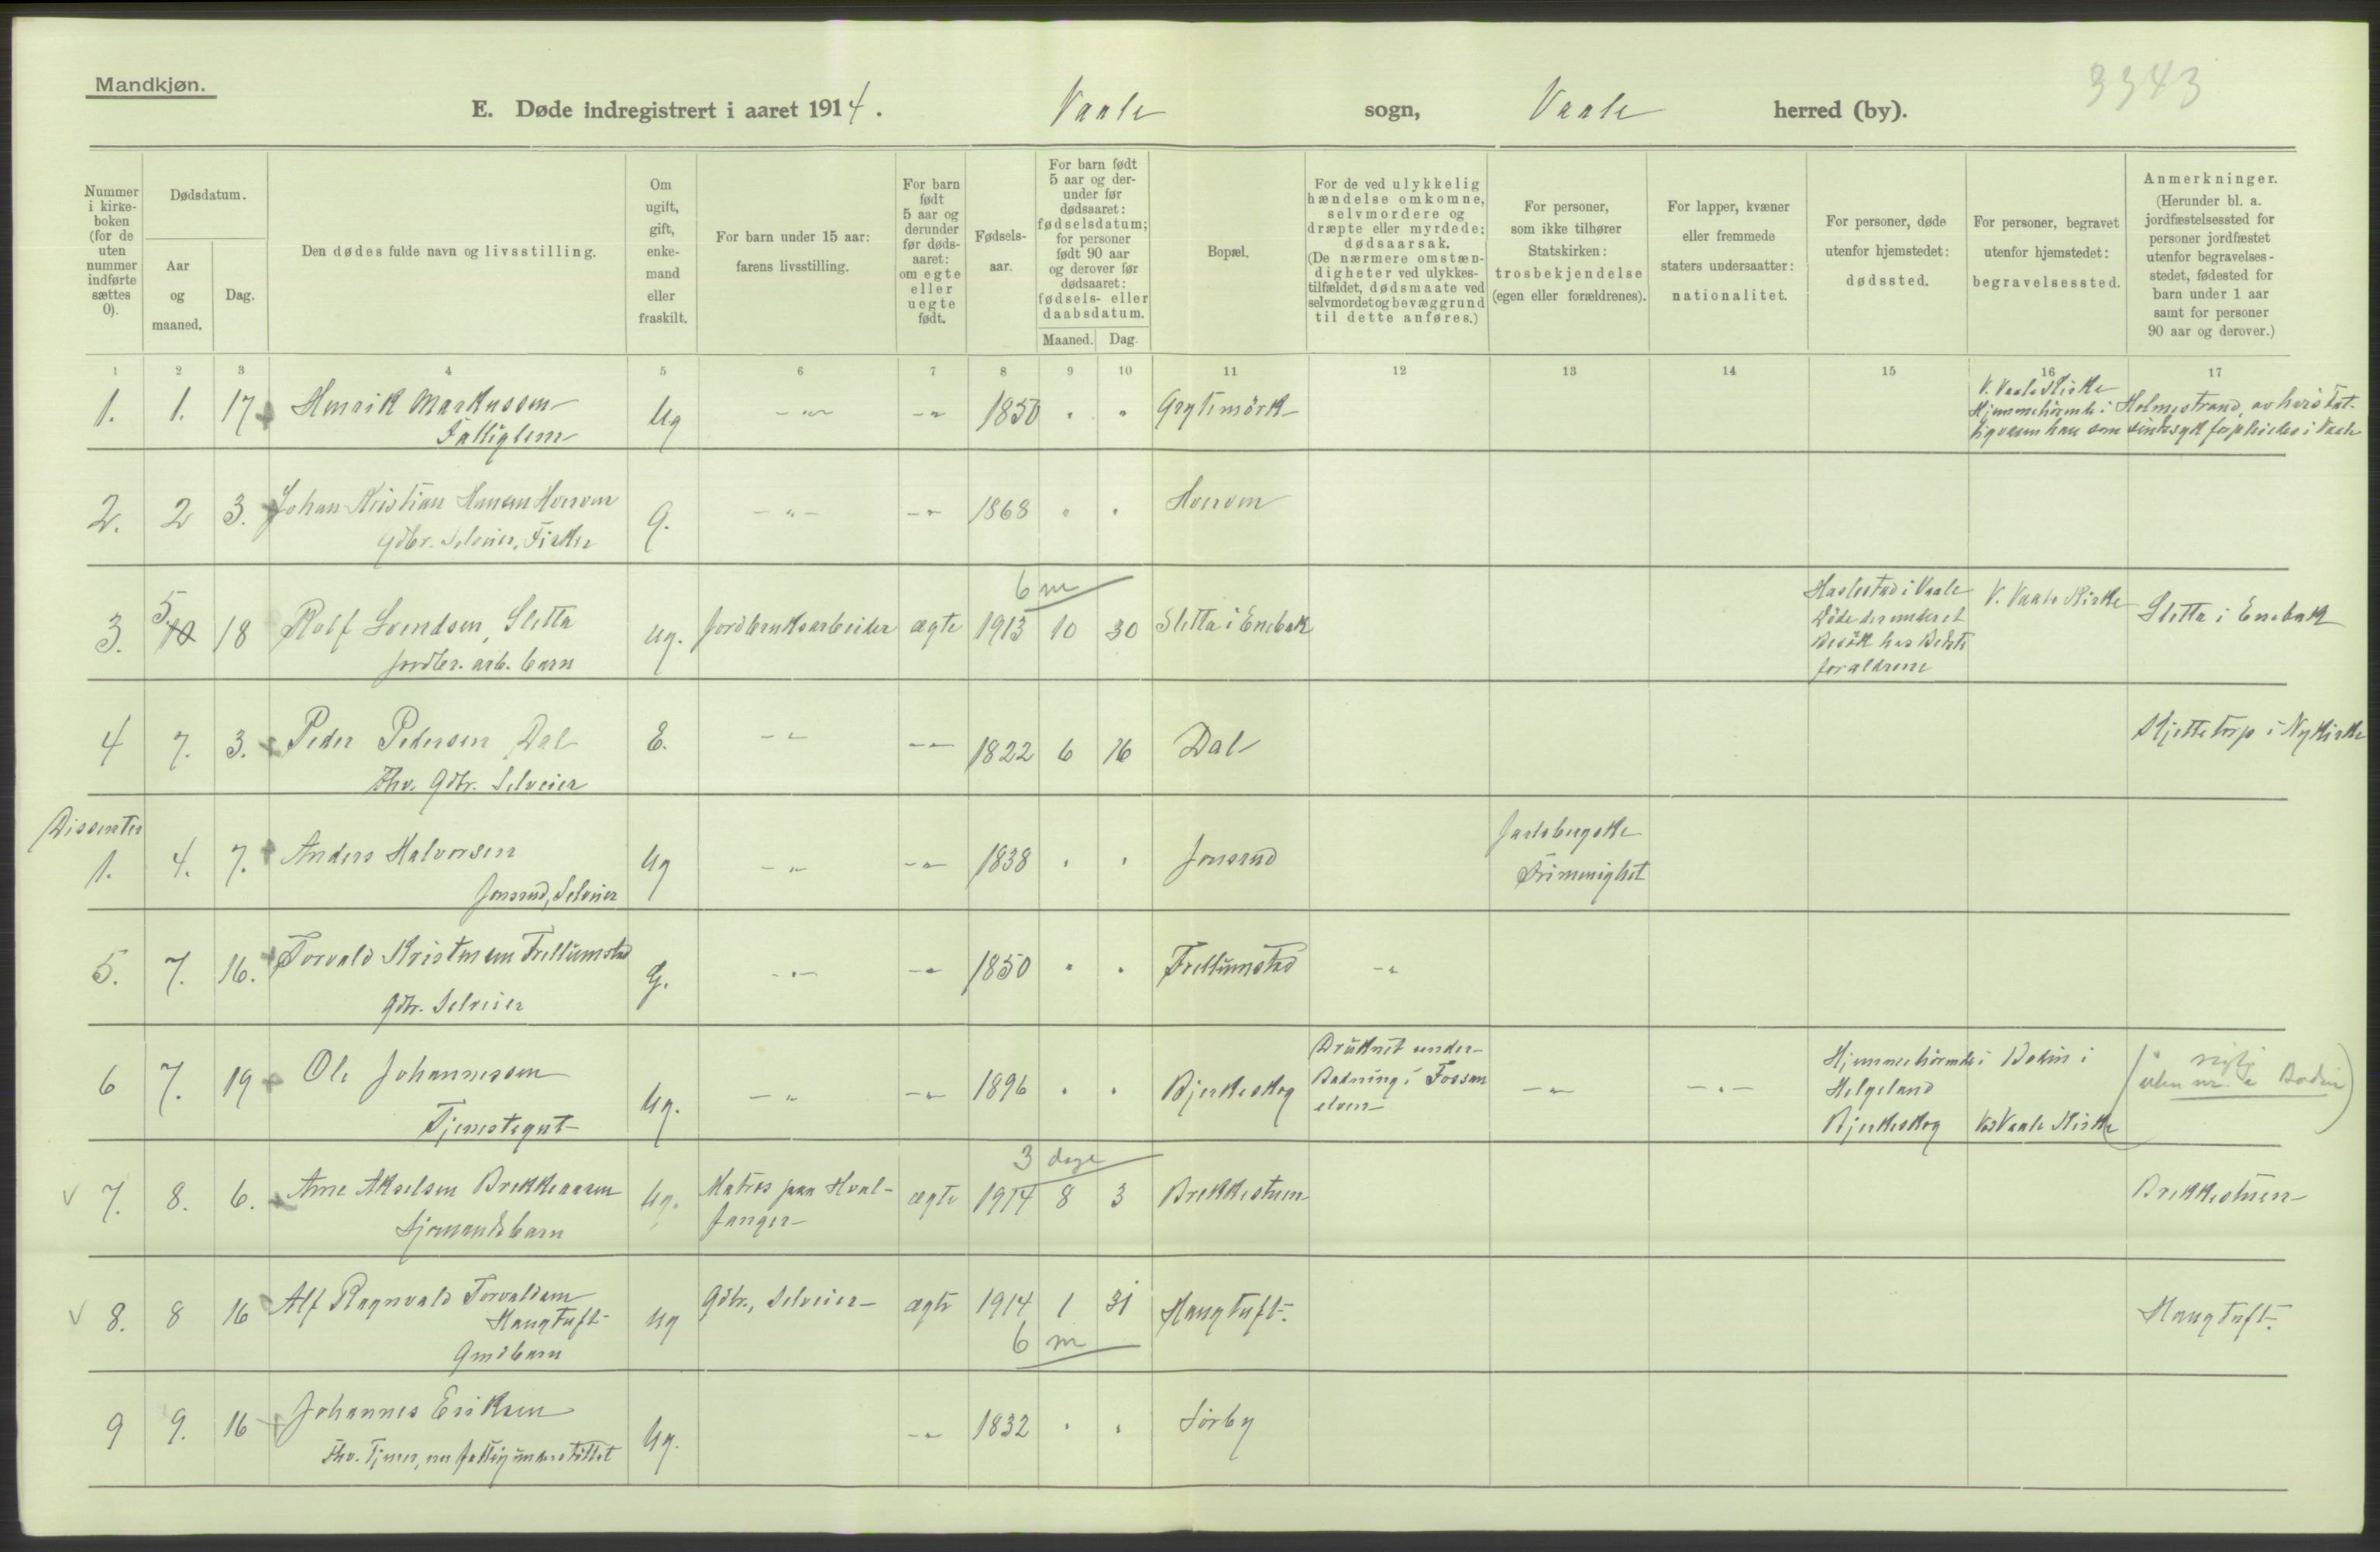 Mandkjøn.
3343
E. Døde indregistrert i aaret 1914. Vaale sogn, Vaale herred (by).
Nummer i kirkeboken (for de uten nummer indførte sættes 0).
Dødsdatum.
Aar og maaned.
Dag.
Den dødes fulde navn og livsstilling.
Om ugift, gift, enkemand eller fraskilt.
For barn under 15 aar: farens livsstilling.
For barn født 5 aar og derunder før dødsaaret: om egte eller uegte født.
Fødselsaar.
For barn født 5 aar og derunder før dødsaaret: fødselsdatum; for personer født 90 aar og derover før dødsaaret: fødsels- eller daabsdatum.
Maaned. Dag.
Bopæl.
For de ved ulykkelig hændelse omkomne, selvmordere og dræpte eller myrdede: dødsaarsak. (De nærmere omstændigheter ved ulykkestilfældet, dødsmaate ved selvmordet og bevæggrund til dette anføres.)
For personer, som ikke tilhører Statskirken: trosbekjendelse (egen eller forældrenes).
For lapper, kvæner eller fremmede staters undersaatter: nationalitet.
For personer, døde utenfor hjemstedet: dødssted.
For personer, begravet utenfor hjemstedet: begravelsessted.
Anmerkninger. (Herunder bl. a. jordfæstelsessted for personer jordfæstet utenfor begravelsesstedet, fødested for barn under 1 aar samt for personer 90 aar og derover.)
1 2 3 4 5 6 7 8 9 10 11 12 13 14 15 16 17
1. 1. 17 Henrik Markussen Ug -"- -"- 1850 " " Grytimörk V. Vaale Kirke
Fattiglem
Hjemmehörende i Holmestrand, av hvis Fat-
tigvæsen han som sindssyk forpleides i Vaale
2. 2 3. Johan Kristian Hansen Hoervom G. -"- -"- 1868 " " Hoervom
Gdbr. Selveier, Fisker
6 m
3. 5 10 18 Rolf Svendsen, Sletta ug. Jordbruksarbeider ægte 1913 10 30 Sletta i Enebak Haslestad i Vaale V. Vaale Kirke Sletta i Enebak
Jordbr. arb. barn Döde der under et
Besök hos Bedste
foraldrene
4 7. 3. Peder Pedersen Dal E. -"- -"- 1822 6 16 Dal Skjettetorp i Nykirke
Fhv. Gdbr. Selveier
Dissenter
1. 4. 7. Anders Halvorsen Ug -"- -"- 1838 " " Jonsrud Jarlsbergske
Jonsrud, Selveier Frimenighet
5. 7. 16. Torvald Kristensen Trellumstad G. -"- -"- 1850 " " Trellumstad -"-
Gdbr. Selveier
6 7. 19 Ole Johannessen Ug. -"- -"- 1896 " " Bjerkeskog Druknet under -"- -"- Hjemmehörende i Bodin i
Tjenestegut Badning i Fossan Helgeland
elven Bjerkeskog Ved Vaale Kirke
uten nr. i Bodin
3 dage
7. 8. 6. Arne Akselsen Brekkeaasen Ug. Matros paa Hval- ægte 1914 8 3 Brekkestuen Brekkestuen
Sjømandsbarn fanger
8. 8 16 Alf Ragnvald Torvaldsen Ug Gdbr., Selveier ægte 1914 1 31 Haugtuft. Haugtuft.
Haugtuft
Gmdbarn 6 m
9 9. 16 Johannes Eriksen Ug. -"- 1832 " " Sörby
Fhv. Tjener, nu fattigunderstöttet